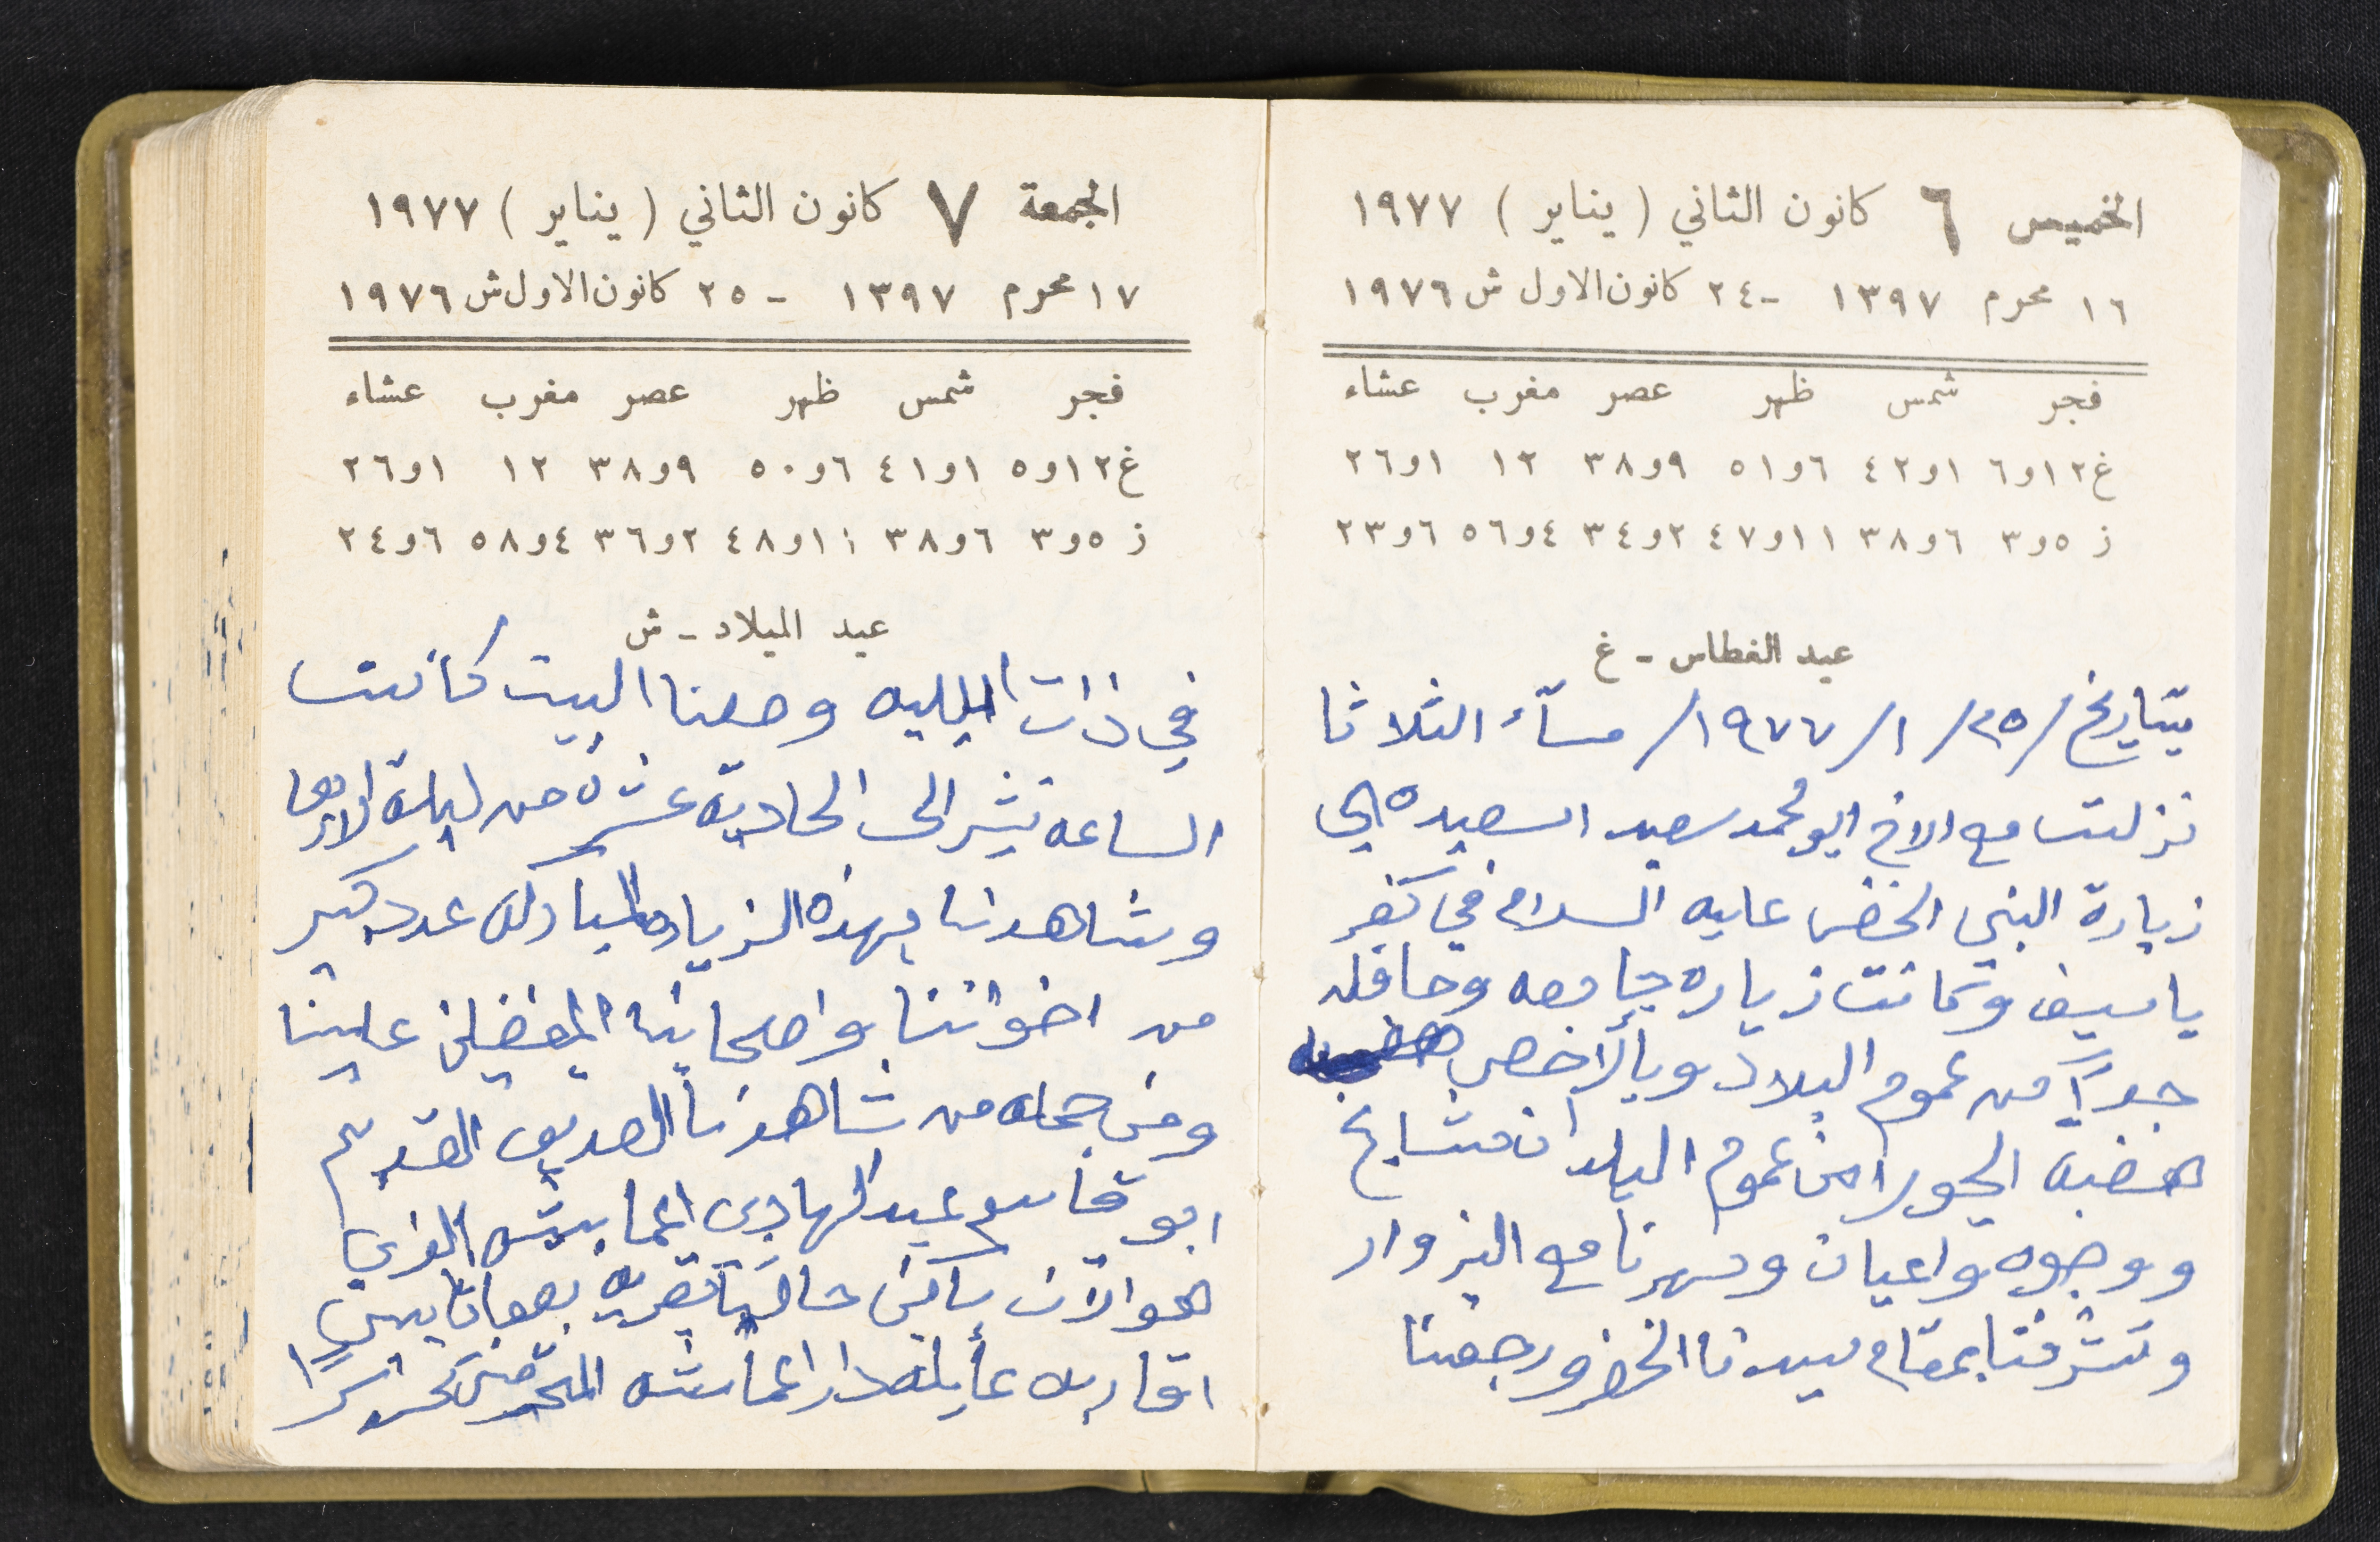 الخميس ٦ كانون الثاني ( يناير ) ١٩٧٧
١٦ محرم ١٣٩٧ - ٢٤ كانون الاول ش ١٩٧٦
فجر شمس ظهر عصر مغرب عشاء
غ ١٢و٦ ١و٤٢ ٦و٥١ ٩و٣٨ ١٢ ١و٢٦
ز ٥و٣ ٦و٣٨ ١١و٤٧ ٢و٣٤ ٤و٥٦ ٦و٢٣
عيد الغطاس - غ
بتاريخ /٢٥/ ١/ ١٩٧٧/ مساء الثلاثا
نزلت مع الاخ ابو محمد سعيد السعيده الى
زيارة النبي الخضر عليه السلام في كفر
ياسيف وكانت زياره جامعه وحافله
جداً من عموم البلاد وبالاخص
هضبة الجولان عموم البلدان مشايخ
ووجوه واعيان وسهرنا مع الزوار
وتشرفنا بمقام سيدنا الخضر ورجعنا
الجمعة ٧ كانون الثاني ( يناير ) ١٩٧٧
١٧ محرم ١٣٩٧ - ٢٥ كانون الاول ش ١٩٧٦
فجر شمس ظهر عصر مغرب عشاء
غ ١٢و٥ ١و٤١ ٦و٥٠ ٩و٣٨ ١٢ ١و٢٦
ز ٥و٣ ٦و٣٨ ١١و٤٨ ٢و٣٦ ٤و٥٨ ٦و٢٤
عيد الميلاد - ش
في ذات الليله وصلنا البيت كانت
الساعه تشير الى الحادية عشره من ليلة الاربعا
وشاهدنا بهذه الزياره المباركه عدد كبير
من اخواننا واصحابنا المفضلين علينا
ومن جملة من شاهدنا الصديق القديم
ابو قاسم عبد الهادي اعمابشه الذي
هو الآن ساكن حاليا بقرية
اقاربه عايلة دار اعماشه